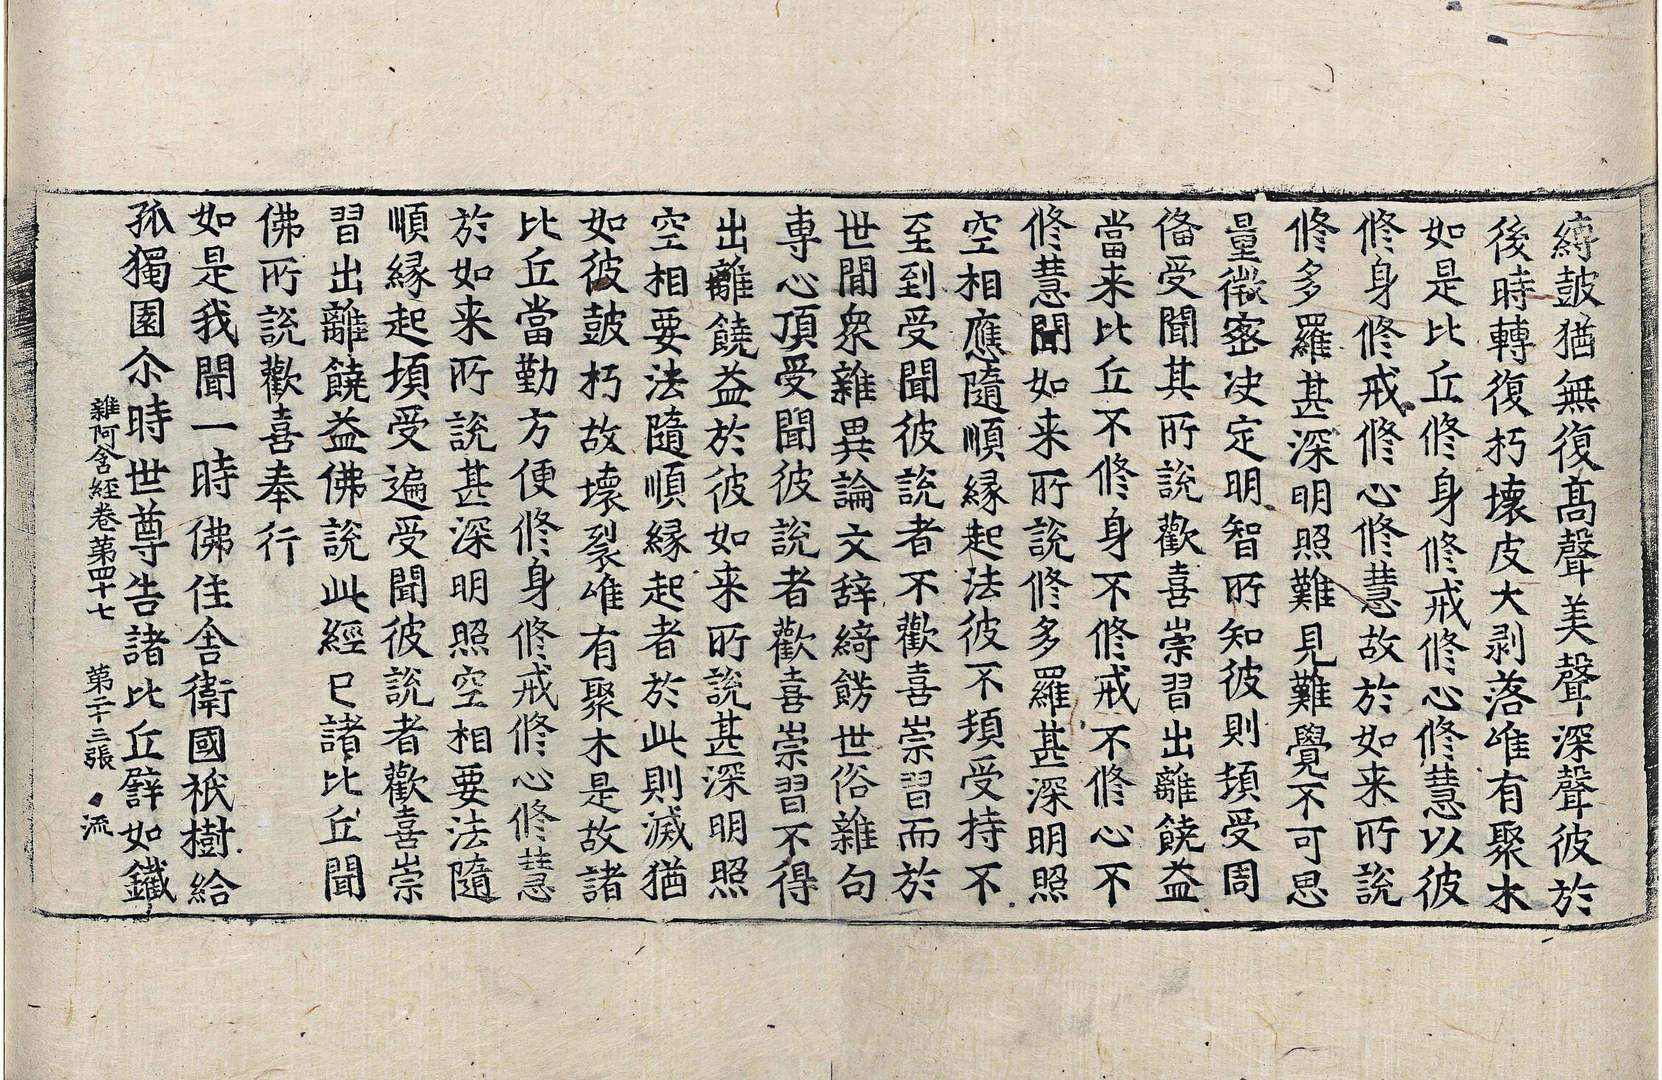 縛鼓猶無復髙聲美聲深聲彼於
後時轉復朽壞皮大剥落唯有聚木
如是比丘修身修戒修心修慧以彼
修身修戒修心修慧故於如来所說
修多羅甚深明照難見難覺不可思
量微密决定明智所知彼則頓受周
俻受聞其所說歡喜崇習出離饒益
當来比丘不修身不修戒不修心不
修慧聞如来所說修多羅甚深明照
空相應隨順縁起法彼不頓受持不
至到受聞彼說者不歡喜崇習而於
世間衆雜異論文辞綺餝世俗雜句
専心頂受聞彼說者歡喜崇習不得
出離饒益於彼如来所說甚深明照
空相要法隨順縁起者於此則滅猶
如彼鼓朽故壞裂唯有聚木是故諸
比丘當勤方便修身修戒修心修慧
於如来所說甚深明照空相要法隨
順縁起頓受遍受聞彼說者歡喜崇
習出離饒益佛說此經已諸比丘聞
佛所說歡喜奉行
如是我聞一時佛住舍衛國祇樹給
孤獨園尒時世尊告諸比丘譬如鐵
雜阿含經卷第四十七 第二十三張 流